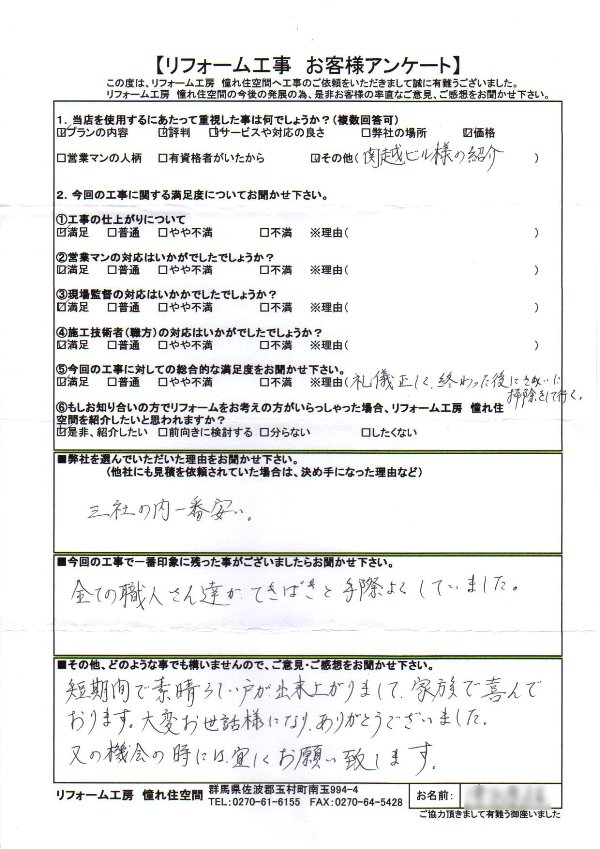 【リフォーム工事　お客様アンケート】
この度は、リフォーム工房　憧れ住空間へ工事のご依頼をいただきまして誠に有難うございました。
リフォーム工房　憧れ住空間の今後の発展の為、是非お客様の率直なご意見、ご感想をお聞かせ下さい。
1．当店を使用するにあたって重視した事は何でしょうか？（複数回答可）
☑プランの内容　☑評判　☑サービスや対応の良さ　□弊社の場所　☑価格
□営業マンの人柄　□有資格者がいたから　☑その他（関越ビル様の紹介　）
2．今回の工事に関する満足度についてお聞かせ下さい。
①工事の仕上がりについて
☑満足　□普通　□やや不満　□不満　※理由（　）
②営業マンの対応はいかがでしたでしょうか？
☑満足　□普通　□やや不満　□不満　※理由（　）
③現場監督の対応はいかかでしたでしょうか？
☑満足　□普通　□やや不満　□不満　※理由（　）
④施工技術者（職方）の対応はいかがでしたでしょうか？
☑満足　□普通　□やや不満　□不満　※理由（　）
⑤今回の工事に対しての総合的な満足度をお聞かせ下さい。
☑満足　□普通　□やや不満　□不満　※理由（礼儀正しく、終わった後にきれいに
掃除をして行く。
⑥もしお知り合いの方でリフォームをお考えの方がいらっしゃった場合、リフォーム工房　憧れ住
空間を紹介したいと思われますか？
☑是非、紹介したい　□前向きに検討する　□分らない　□したくない
■弊社を選んでいただいた理由をお聞かせ下さい。
（他社にも見積を依頼されていた場合は、決め手になった理由など）
三社の内一番安い。
■今回の工事で一番印象に残った事がございましたらお聞かせ下さい。
全ての職人さん達が、てきぱきと手際よくしていました。
■その他、どのような事でも構いませんので、ご意見・ご感想をお聞かせ下さい。
短期間で素晴らしい戸が出来上がりまして、家族で喜んで
おります。大変お世話様になり、ありがとうございました。
又の機会の時には、宜しくお願い致します。
リフォーム工房　憧れ住空間　群馬県佐波郡玉村町南玉994-4
TEL:0270-61-6155　FAX:0270-64-5428
お名前：
ご協力頂きまして有難う御座いました